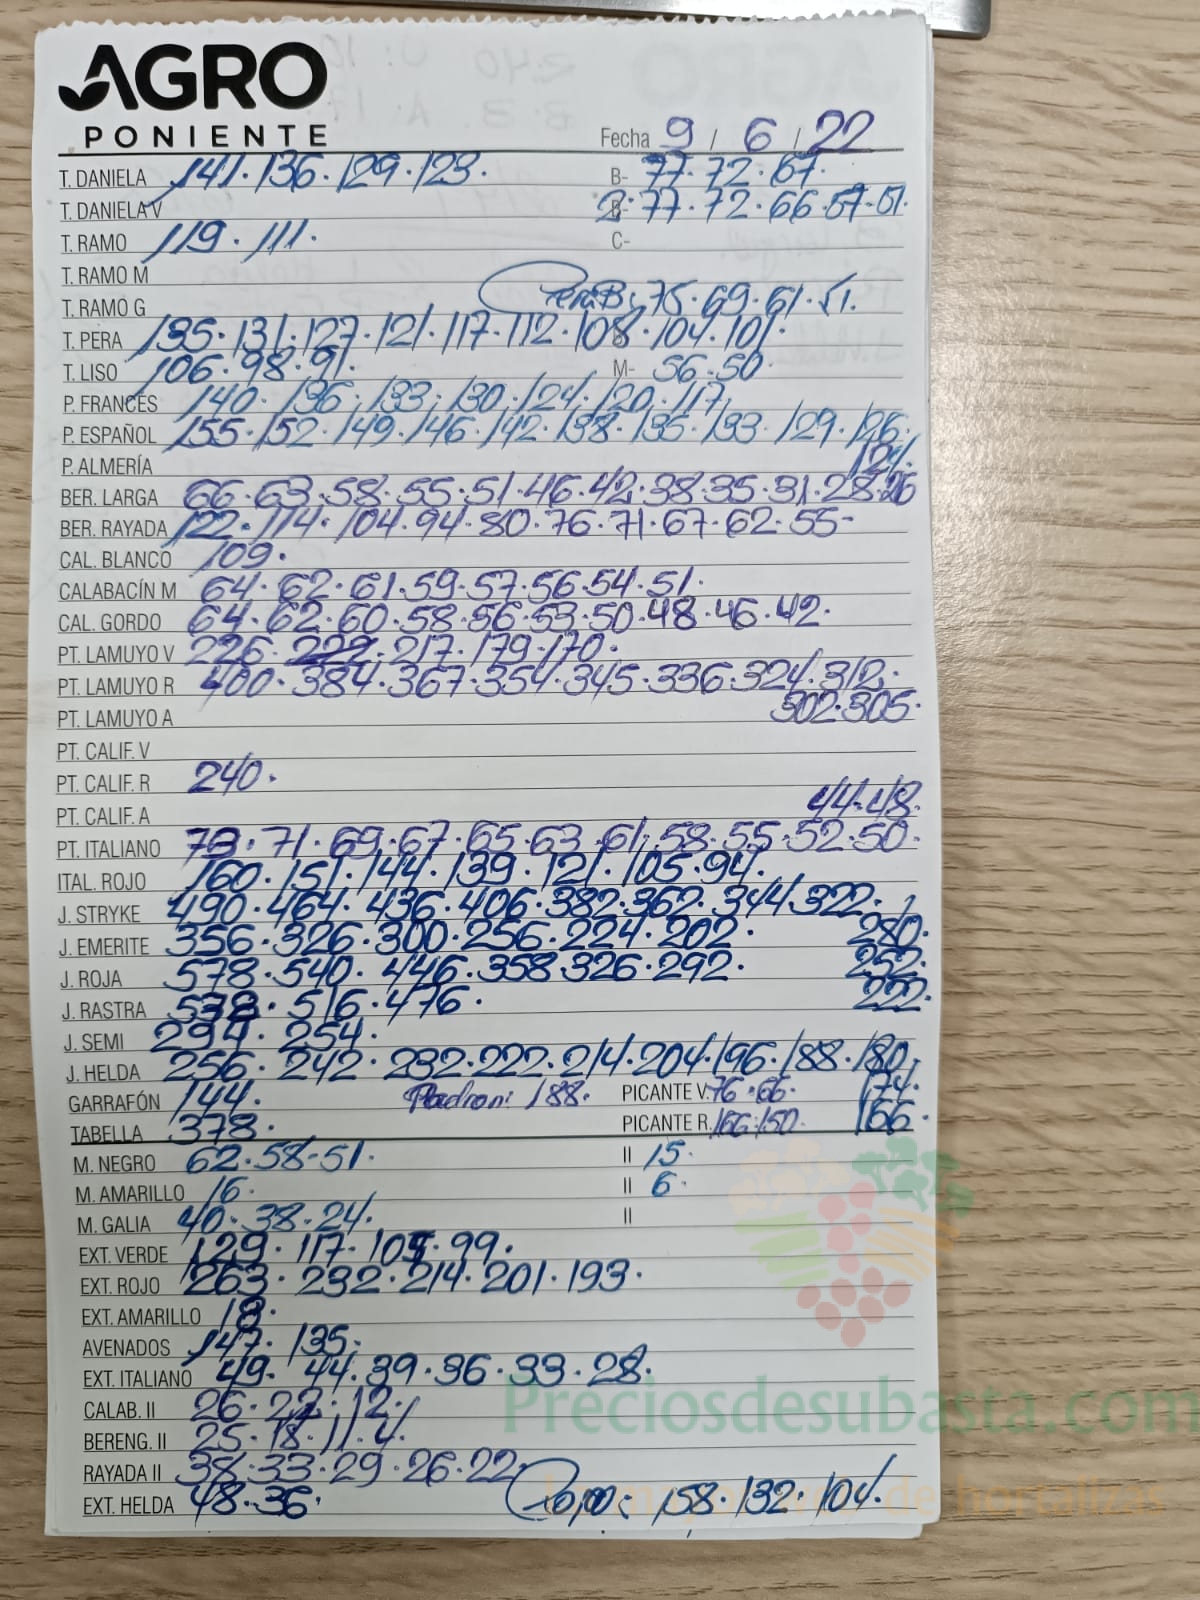 AGRO
PONIENTE
Fecha 9 / 6 / 22
T. DANIELA 141. 136. 129. 123. B- 77. 72. 67.
T. DANIELA V 2: 77. 72. 66. 57. 51.
T. RAMO 119. 111. C-
T. RAMO M
T. RAMO G Pera B: 75. 69. 61. 51.
T. PERA 135. 131. 127. 121. 117. 112. 108. 104. 101.
T. LISO 106. 98. 91. M- 56. 50.
P. FRANCÉS 140. 136. 133. 130. 124. 120. 117.
P. ESPAÑOL 155. 152. 149. 146. 142. 138. 136. 133. 129. 126.
P. ALMERÍA 124.
BER. LARGA 66. 63. 58. 55. 51. 46. 42. 38. 35. 31. 28. 26
BER. RAYADA 122. 114. 104. 94. 80. 76. 71. 67. 62. 55-
CAL. BLANCO 109.
CALABACÍN M 64. 62. 61. 59. 57. 56. 54. 51.
CAL. GORDO 64. 62. 60. 58. 56. 53. 50. 48. 46. 42.
PT. LAMUYO V 226. 222. 217. 179. 170.
PT. LAMUYO R 400. 384. 367. 354. 345. 336. 324. 312.
PT. LAMUYO A 302. 305.
PT. CALIF. V
PT. CALIF. R 240.
PT. CALIF. A 44. 48.
PT. ITALIANO 73. 71. 69. 67. 65. 63. 61. 58. 55. 52. 50.
ITAL. ROJO 160. 151. 144. 139. 121. 105. 94.
J. STRYKE 490. 464. 436. 406. 382. 362. 344. 322.
J. EMERITE 356. 326. 300. 256. 224. 202. 280.
J. ROJA 578. 540. 446. 358. 326. 292. 252.
J. RASTRA 538. 516. 476. 222.
J. SEMI 294. 254.
J. HELDA 256. 242. 232. 222. 214. 204. 196. 188. 180.
GARRAFÓN 144. Padron: 188. PICANTE V. 76. 66. 174.
TABELLA 378. PICANTE R. 166. 150. 166.
M. NEGRO 62. 58-51. II 15.
M. AMARILLO 16. II 6.
M. GALIA 40. 38. 24. II
EXT. VERDE 129. 117. 105. 99.
EXT. ROJO 263. 232. 214. 201. 193.
EXT. AMARILLO 18.
AVENADOS 147. 135.
EXT. ITALIANO 49. 44. 39. 36. 33. 28.
Preciosdesubasta.com
CALAB. II 26. 22. 12.
BERENG. II 25. 18. 11. 4.
RAYADA II 38. 33. 29. 26. 22.
EXT. HELDA 48. 36. 158. 132. 104.
de hortalizas